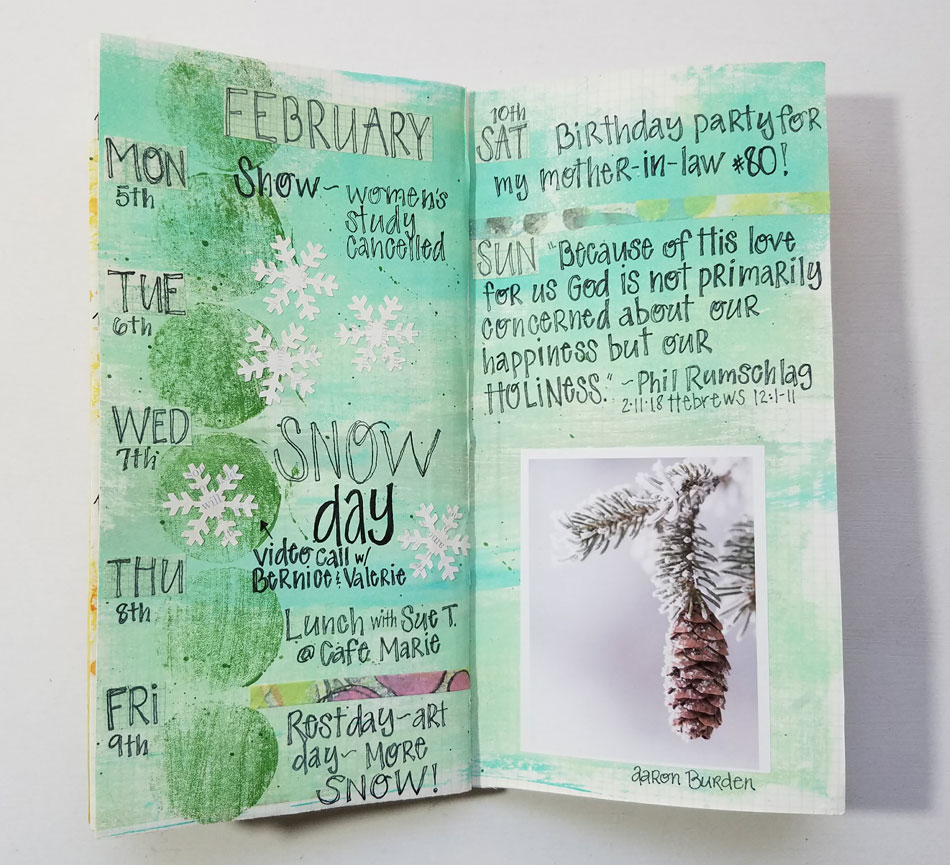 FEBRUARY
MON
5th
Snow~ women's
study
cancelled
TUE
6th
WED
7th
SNOW
day
will
Video call w/
Bernice & Valerie
THU
8th
Lunch with Sue T.
@ Café Marie
FRi
9th
Rest day~art
day~ More
SNOW!
10th
SAT Birthday party for
my mother-in-law #80!
SUN "Because of His love
for us God is not primarily
concerned about our
happiness but our
HOLiNESS." ~Phil Rumschlag
2.11.18 Hebrews 12:1-11
aaron Burden